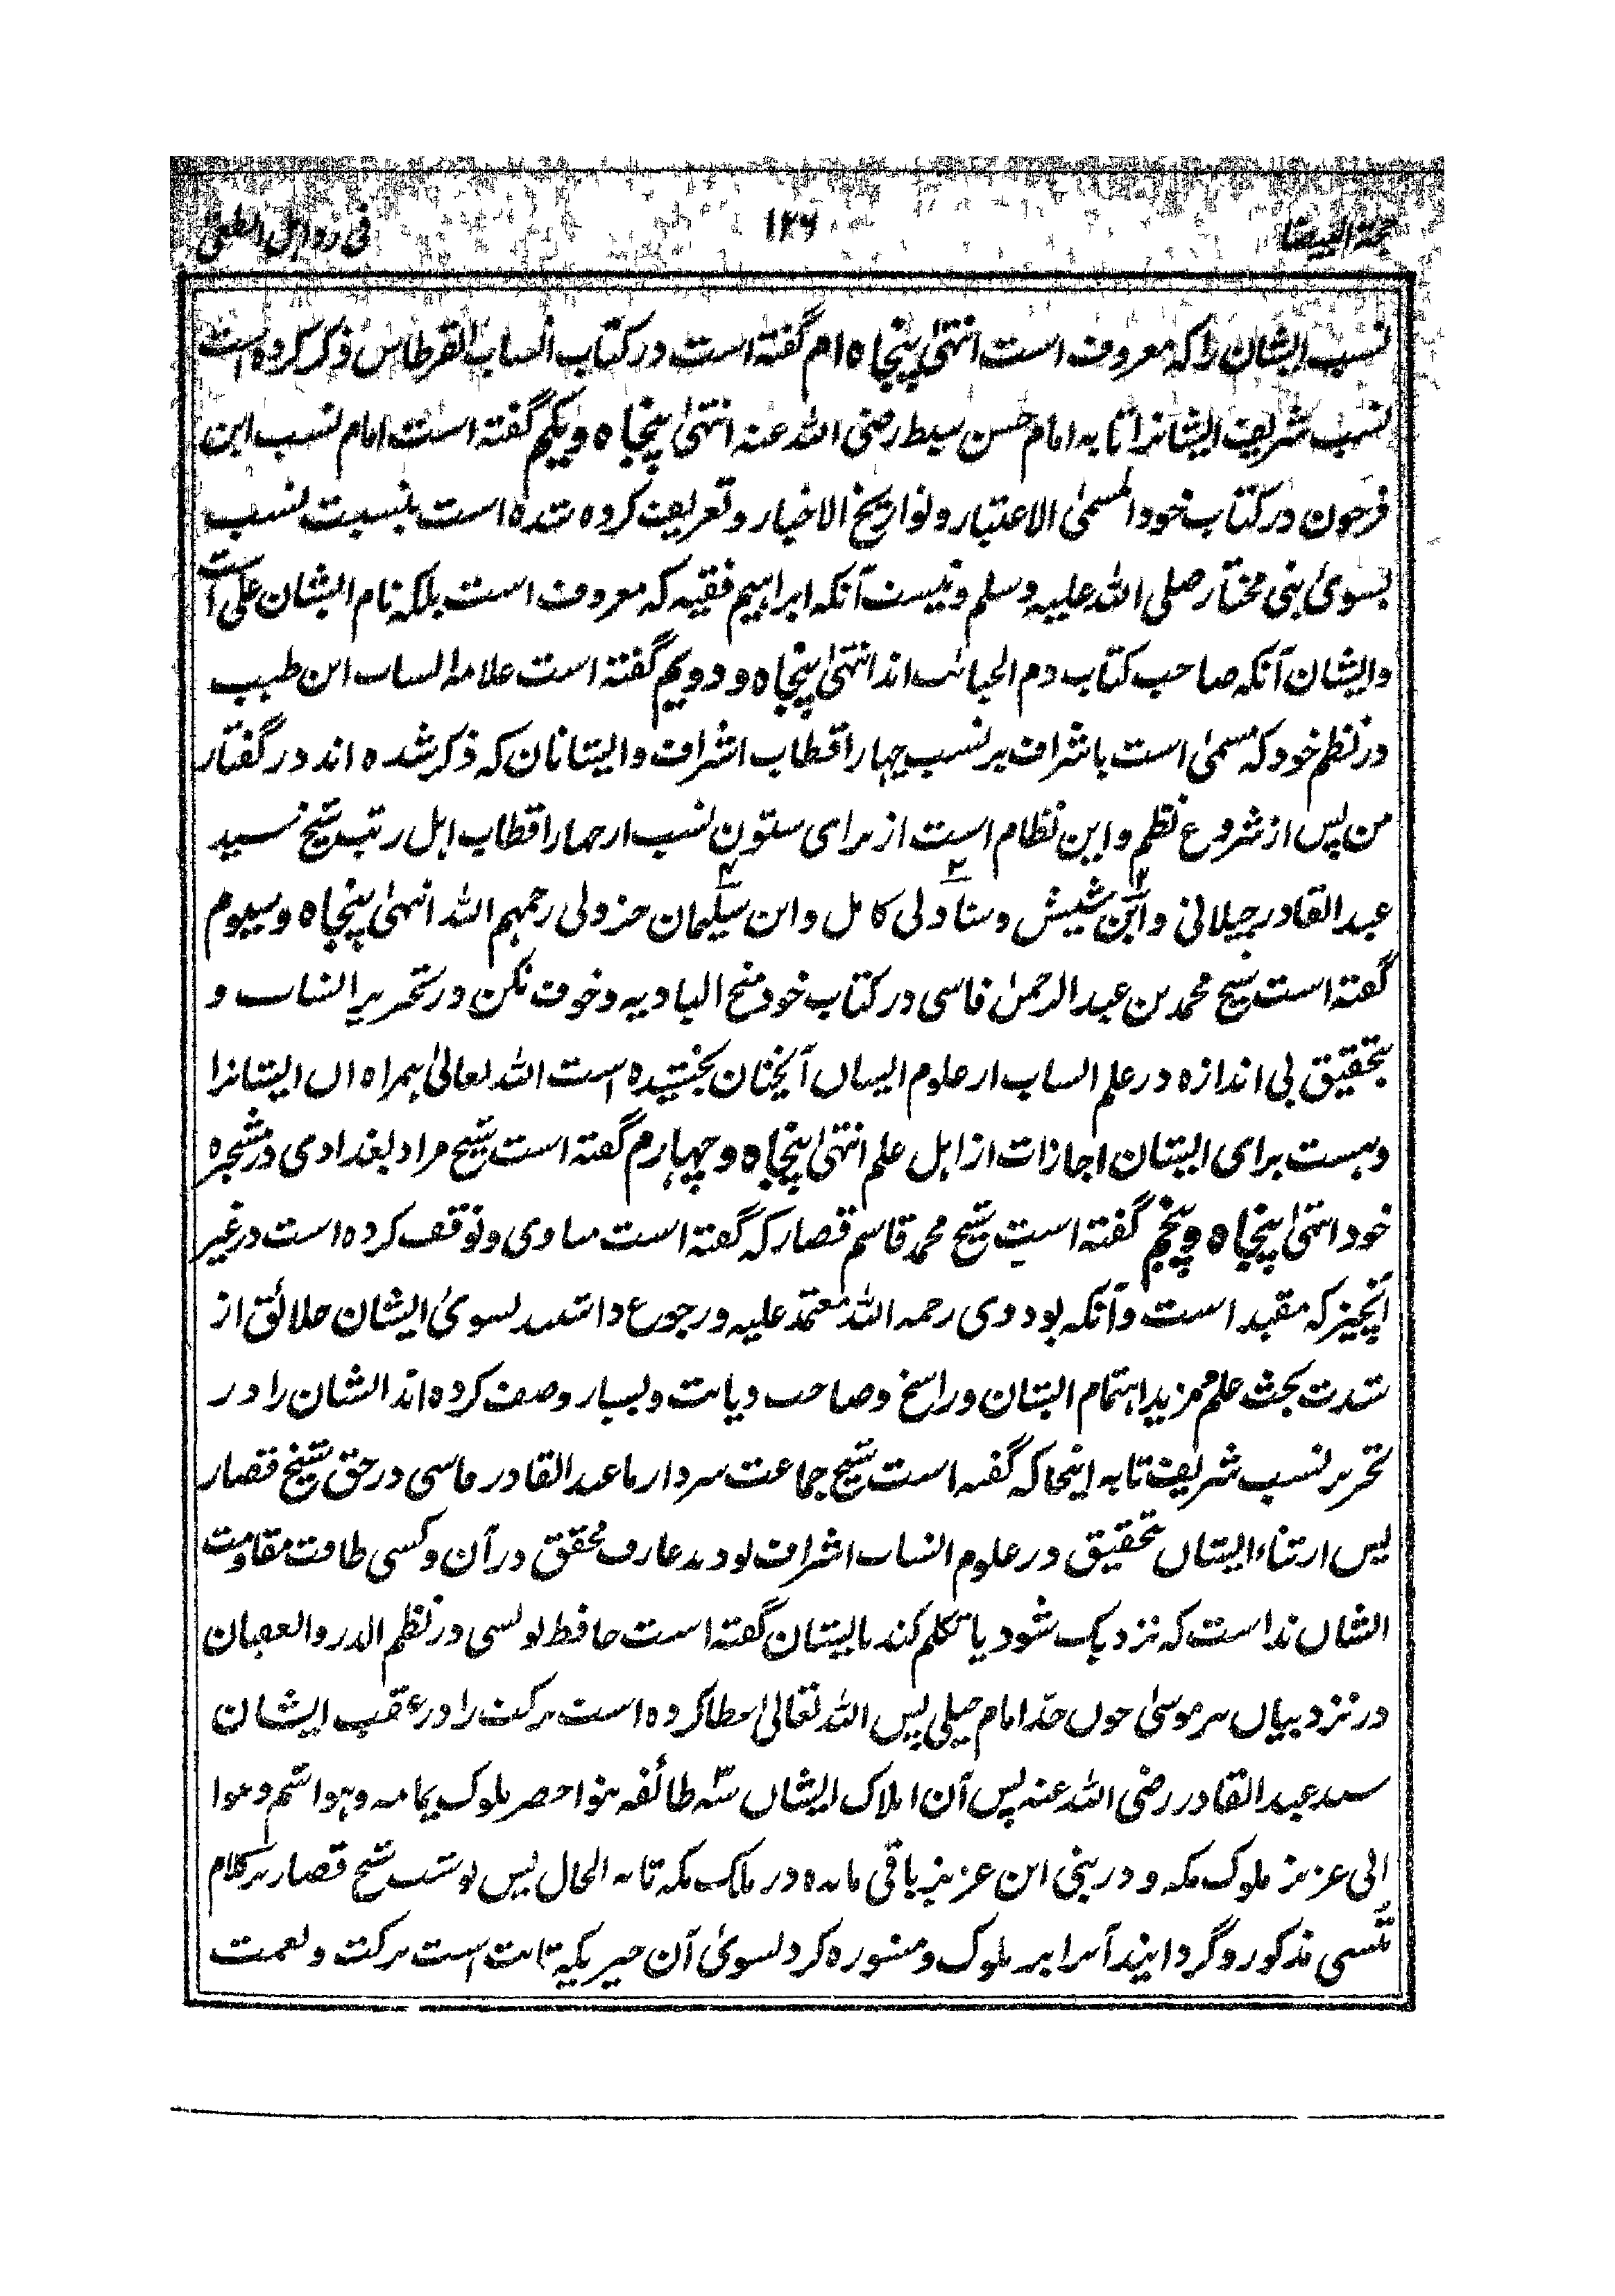 ۱۲۶
نسب ایشان را که معروف است انتهیٰ پنجاه ام گفته است در کتاب انساب القرطاس ذکر کرده است
نسب شریف ایشانرا تا به امام حسن سبط رضی الله عنه انتهیٰ پنجاه و یکم گفته است امام نسب ابن
فرحون در کتاب خود المسمیٰ الاعتبار و تواریخ الاخبار و تعریف کرده شده است بنسبت نسب
بسویٔ بنی مختار صلی الله علیه وسلم و نیست آنکه ابراهیم فقیه که معروف است بلکه نام ایشان علی است
و ایشان آنکه صاحب کتاب دم اند انتهیٰ پنجاه و دویم گفته است علامه انساب ابن طیب
در نظم خود که مسمیٰ است باشراف بر نسب چهار اقطاب اشراف و ایشانان که ذکر شده اند در گفتار
من پس از شروع نظم و این نظام است از برای ستون نسب از چهار اقطاب اهل رتب شیخ سید
عبد القادر جیلانی و ابن شیش و شاذلی کامل و ابن سلیمان جزولی رحمهم الله انتهیٰ پنجاه و سیوم
گفته است شیخ محمد بن عبد الرحمن فاسی در کتاب خود منح البادیه و خوف نکن در تحریر انساب و
بتحقیق بی اندازه در علم انساب از علوم ایشان آنچنان بخشیده است الله تعالیٰ همراه آن ایشانرا
و هست برای ایشان اجازات از اهل علم انتهیٰ پنجاه و چهارم گفته است شیخ مراد بغدادی در مشجره
خود انتهیٰ پنجاه و پنجم گفته است شیخ محمد قاسم قصار که گفته است مناوی و توقف کرده است در غیر
آنچیز که مقید است و آنکه بود وی رحمه الله معتمد علیه و رجوع داشتند بسویٔ ایشان خلائق از
شدت بحث علم مزید اهتمام ایشان و راسخ و صاحب دیانت و بسیار وصف کرده اند ایشان را در
تحریر نسب شریف تا به اینجا که گفته است شیخ جماعت سردار ما عبد القادر فاسی در حق شیخ قصار
پس ایشان تحقیق در علوم انساب اشراف بودند عارف محقق در آن و کسی طاقت مقاومت
ایشان نداست که نزدیک شود یا تکلم کند با ایشان گفته است حافظ تونسی در نظم الدر والعقیان
در نزد بیان موسیٰ جون جد امام جیلی پس الله تعالیٰ عطا کرده است برکت را در عقب ایشان
سید عبد القادر رضی الله عنه پس آن املاک ایشان سه طائفه بنو اخضر ملوک یمامه و هواشم و بنوا
الی عزیز ملوک مکه و در بنی ابن عزیز باقی مانده در ملک مکه تا به الحال پس نوشت شیخ قصار بر کلام
تنسی مذکور و گردانید آنرا بر ملوک و مشوره کرد بسویٔ آن چیزیکه ثابت است برکت و نعمت